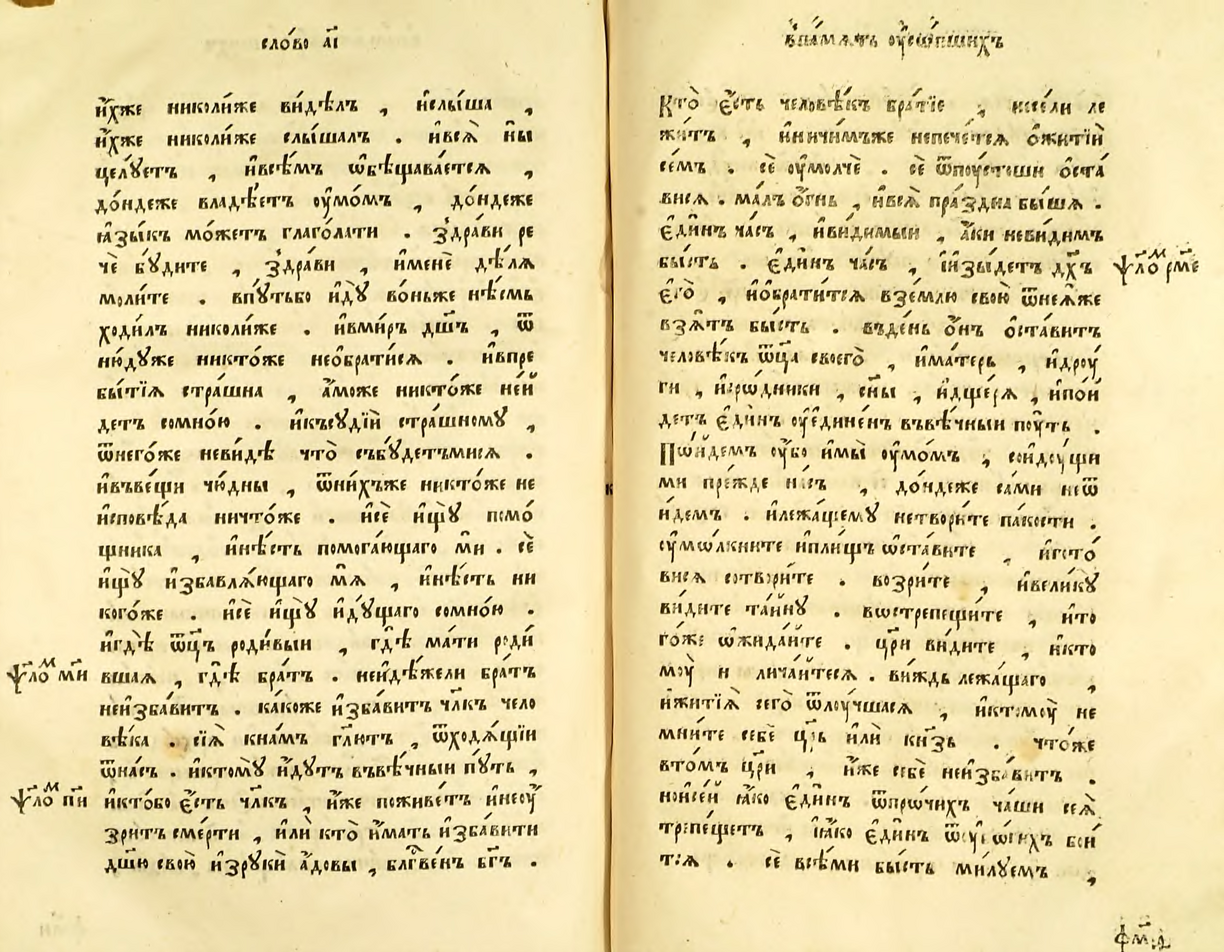 сло́во а҃і
и҆́хже николи́же ви́дѣлъ , и҆слы́ша ,
и҆́хже николи́же слы́шалъ . и҆всѧ̀ ны̀
цѣлꙋ́етъ , и҆всѣ́мъ ѡ҆бѣщава́етсѧ ,
до́ндеже владѣ́етъ ᲂу҆мо́мъ , до́ндеже
ꙗ҆зы́къ мо́жетъ глаго́лати . здра́ви ре
чѐ бꙋ́дите , здра́ви , и҆менѐ дѣ́лѧ
моли́те . впꙋ́тьбо и҆дꙋ̀ во́ньже нѣ́смь
ходи́лъ николи́же . и҆вми́ръ дш҃ъ , ѿ
ню́дꙋже никто́же необрати́сѧ . и҆впре
бы́тїѧ стра́шна , а҆́може никто́же не и҆
детъ сомно́ю . и҆късꙋдїѝ стра́шномꙋ ,
ѿнего́же неви́дѣ что̀ събꙋ́детъмисѧ .
и҆въве́щи чю́дны , ѿни́хъже никто́же не
и҆сповѣ́да ничто́же . и҆сѐ и҆щꙋ̀ помо́
щника , и҆нѣ́сть помога́ющаго мѝ . сѐ
и҆щꙋ̀ и҆збавлѧ́ющаго мѧ̀ , и҆нѣ́сть ни
кого́же . и҆сѐ и҆щꙋ̀ и҆дꙋ́щаго сомно́ю .
и҆гдѣ̀ ѿц҃ъ роди́выи , гдѣ̀ ма́ти роди́
ѱало́м ми вшаѧ , гдѣ̀ бра́тъ . неи҆дѣ́жели бра́тъ
неи҆зба́витъ . како́же и҆зба́витъ чл҃къ чело
вѣ́ка . сїѧ̀ кна́мъ гл҃ютъ , ѿходѧ́щїи
ѿна́съ . и҆ктомꙋ̀ и҆дꙋ́тъ въвѣ́чныи пꙋ́ть ,
ѱало́м пи и҆кто́бо є҆́сть чл҃къ , и҆́же поживе́тъ и҆неᲂу҆́
зритъ сме́рти , и҆лѝ кто̀ и҆́мать и҆зба́вити
дш҃ю свою̀ и҆зрꙋкѝ а҆́довы , блг҃ве́нъ бг҃ъ .
впа́мѧть ᲂу҆со́пшихъ
Кто̀ є҆́сть человѣ́къ бра́тїе , иже́ли ле
жи́тъ , и҆ничи́мъже непече́тсѧ ѻ҆житїѝ
се́мъ . сѐ ᲂу҆молчѐ . сѐ ѿпоустоши ѻ҆ста́
висѧ . ма́лъ ѻ҆́гнь , и҆всѧ̀ пра́здна бы́шѧ .
є҆ди́нъ ча́съ , и҆ви́димыи , а҆́ки неви́димъ
бы́сть . є҆ди́нъ ча́съ , и҆и҆зы́детъ дх҃ъ ѱало́м рм҃е
є҆гѡ̀ , и҆ѻ҆брати́тсѧ взе́млю свою̀ ѿнеѧ́же
взѧ́тъ бы́сть . въде́нь ѻ҆́нъ ѻ҆ста́витъ
человѣ́къ ѿц҃а своего̀ , и҆ма́терь , и҆дроу́
ги , и҆сро́дники , сн҃ы , и҆дще́рѧ , и҆пои́
детъ є҆ди́нъ ᲂу҆единє́нъ въвѣ́чныи поу́ть .
По́идемъ ᲂу҆́бо и҆мы̀ ᲂу҆мо́мъ , сои҆дꙋ́щи
ми пре́жде на́съ , до́ндеже са́ми неѿ
и҆́демъ . и҆лежа́щемꙋ нетвори́те па́кости .
ᲂу҆мо́лкните и҆пли́щъ ѡ҆ста́вите , и҆гото́
висѧ сотвори́те . возри́те , и҆вели́кꙋ
ви́дите та́инꙋ . вострепещи́те , и҆то
го́же ѡ҆жида́ите . цр҃и ви́дите , и҆кто
моу̀ не лича́итесѧ . ви́ждь лежа́щаго ,
и҆житїѧ̀ сего̀ ѿлоучшасѧ , и҆ктомоу̀ не
мни́те себѐ цр҃ь и҆лѝ кнѧ҃зь . что́же
вто́мъ цр҃и , и҆́же себѐ неи҆зба́витъ .
нои҆се́и ꙗ҆́ко є҆ди́нъ ѿпро́чихъ ча́ши сеѧ̀
трепе́щетъ , ꙗ҆́ко є҆ди́нъ ѿᲂу҆бо́гихъ бои́
тсѧ . сѐ все́ми бы́сть ми́лꙋемъ ,